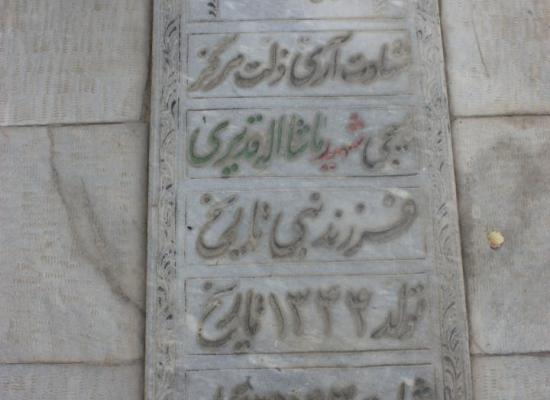 شهادت آری ذلت هرگز
بسیجی شهید ماشااله قدیری
فرزند نبی تاریخ
تولد ۱۳۴۴ تاریخ